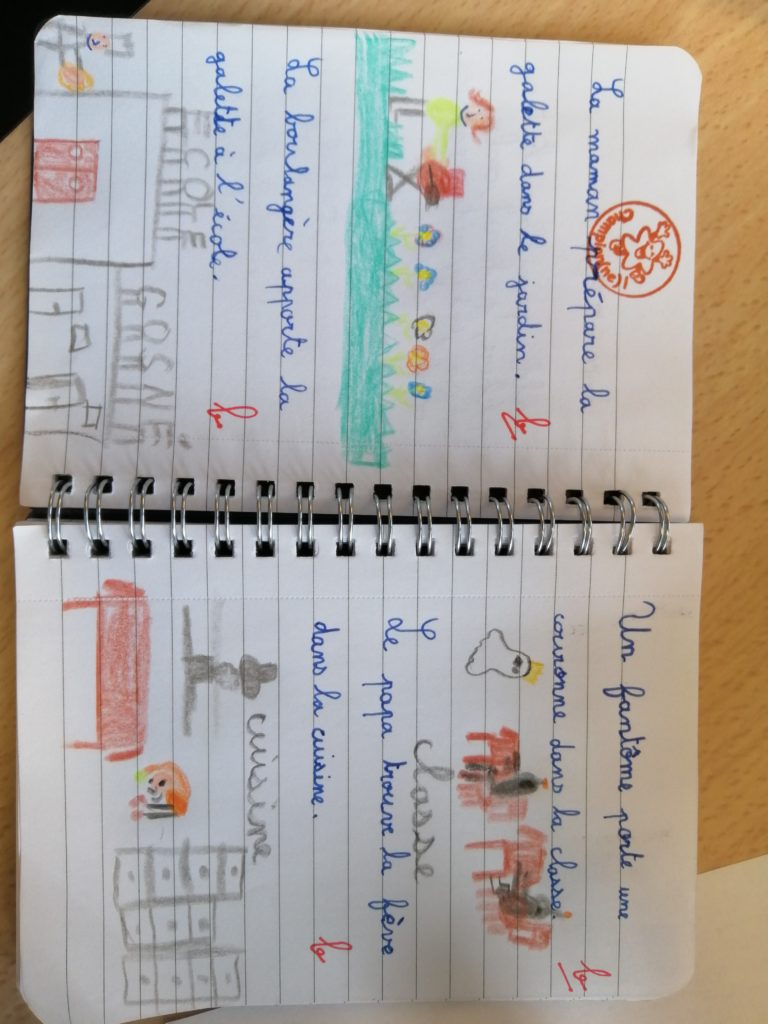 La maman prépare la
galette dans le jardin.
La boulangère apporte la
galette à l'école.
ECOLE
GASNÉ
Un fantôme porte une
couronne dans la classe.
classe
Le papa trouve la fève
dans la cuisine.
cuisine